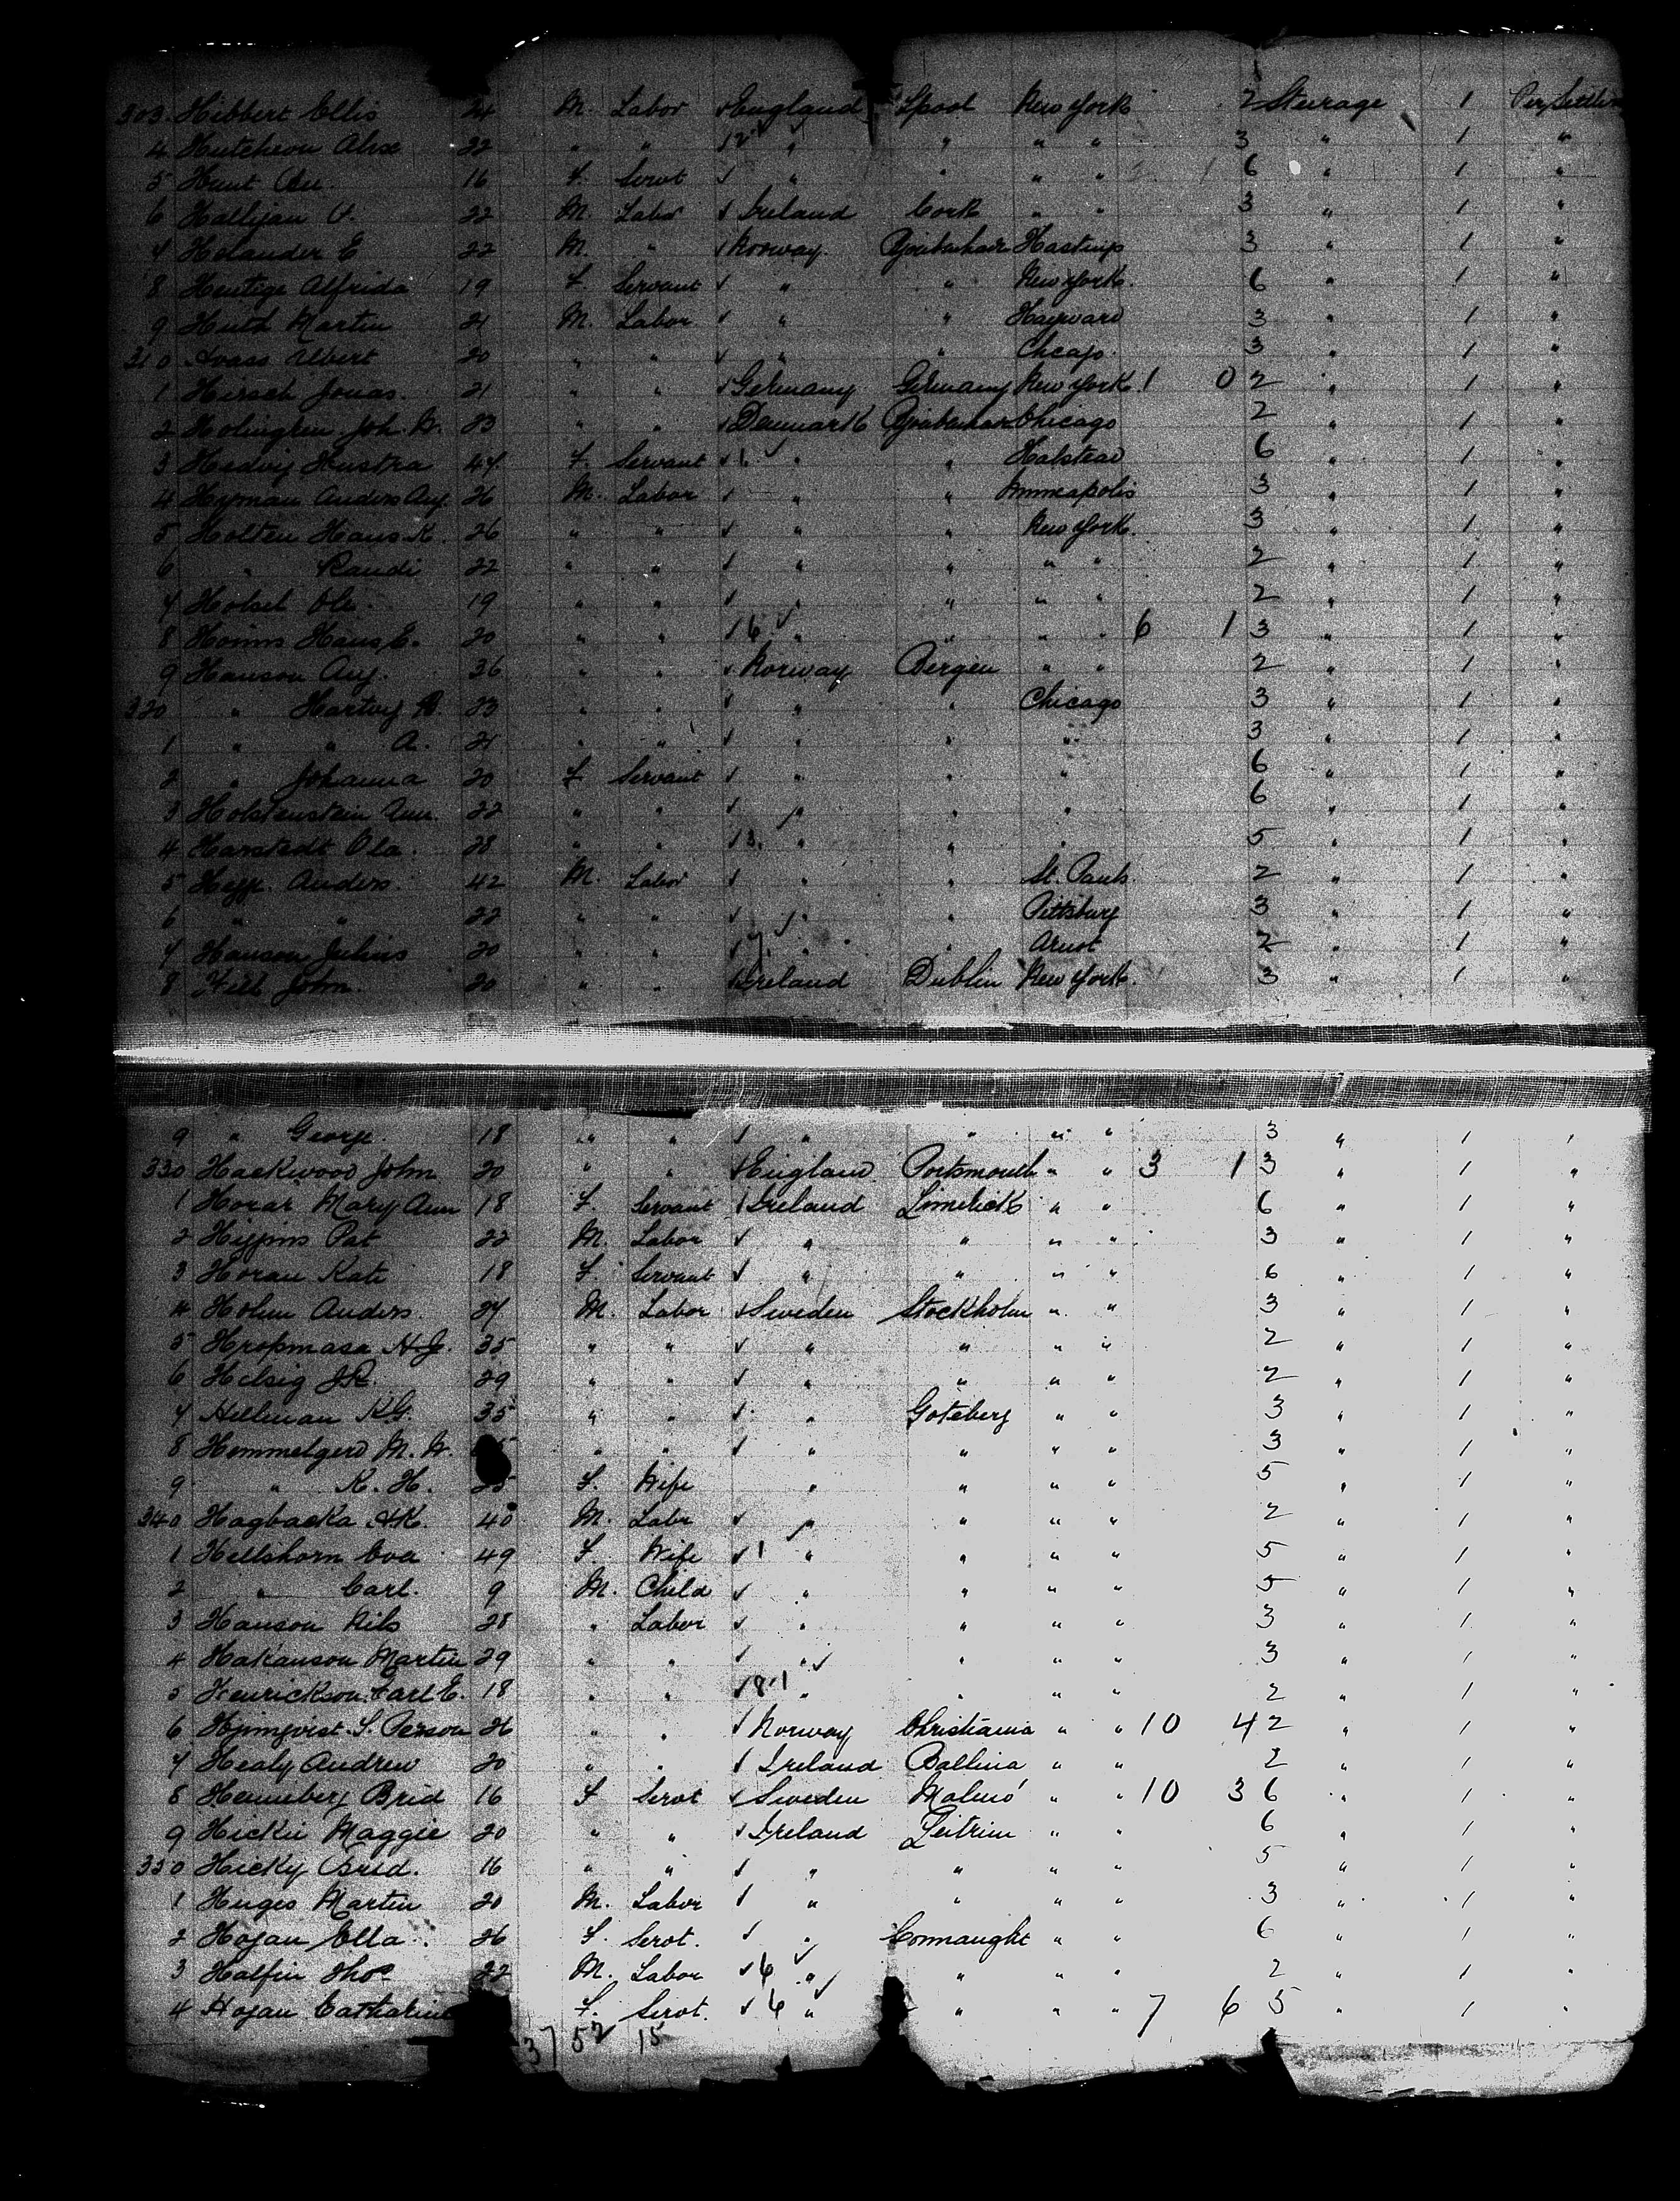 303 Hibbert Ellis 24 M. Labor England Lpool New York 2 Steerage 1 Per Settler
4 Hutcheon Alex 22 " " 12 " " " " 3 " 1 "
5 Hunt 16 F. Servt " " " " 6 " 1 "
6 Hallijan 22 M. Labor Ireland Cork " " 3 " 1 "
7 Helander E 22 M. " Norway Hastings 3 " 1 "
8 Alfrida 19 F. Servant " " New York. 6 " 1 "
9 Martin 21 M. Labor " " Hayward 3 " 1 "
310 Albert 20 " " " " Chicago. 3 " 1 "
1 Hirsch Jonas. 21 " " Germany Germany New York. 1 0 2 " 1 "
2 Holingren Joh. 23 " " Denmark Chicago 2 " 1 "
3 Hedvig 44 F. Servant 6 " " Halstead 6 " 1 "
4 Hyman Anders Aug. 26 M. Labor " " Minneapolis 3 " 1 "
5 Holten Hans K. 26 " " " " New York. 3 " 1 "
6 " Randi 22 " " " " " " 2 " 1 "
7 Holset Ole. 19 " " " " " " 2 " 1 "
8 Hans E. 20 " " 6 " " " " 6 1 3 " 1 "
9 Hanson Aug. 36 " " Norway Bergen " " 2 " 1 "
320 " Hartvig 23 " " " " Chicago 3 " 1 "
1 " " A. 21 " " " " " 3 " 1 "
2 " Johanna 20 F. Servant " " " 6 " 1 "
3 Holstenstein Ann. 22 " " " " " 6 " 1 "
4 Harstedt Ola. 28 " " 3. " " " 5 " 1 "
5 Anders. 42 M. Labor " " St. Pauls. 2 " 1 "
6 " " 22 " " " " Pittsburg 3 " 1 "
7 Hanson Julius 20 " " 7 " " Arnot 2 " 1 "
8 Hill John. 20 " " Ireland Dublin New York. 3 " 1 "
9 " George. 18 " " " " " " 3 " 1 "
330 Hackwood John 20 " " England. Portsmouth " " 3 1 3 " 1 "
1 Horar Mary Ann 18 F. Servant Ireland Limerick " " 6 " 1 "
2 Higgins Pat 22 M. Labor " " " " 3 " 1 "
3 Horan Kate 18 F. Servant " " " " 6 " 1 "
4 Holm Anders. 27 M. Labor Sweden Stockholm " " 3 " 1 "
5 Hropmasa 35 " " " " " " 2 " 1 "
6 Helsig 29 " " " " " " 2 " 1 "
7 Hellman K.G. 35 " " " Goteberg " " 3 " 1 "
8 Hemmelgerd M. " " " " " " 3 " 1 "
9 " K. H. 25 F. Wife " " " " 5 " 1 "
340 Hagbacka 40 M. Labr " " " " 2 " 1 "
1 Hellshorn Eva 49 F. Wife 1 " " " " 5 " 1 "
2 " Carl. 9 M. Child " " " " 5 " 1 "
3 Hanson Nils 28 " Labor " " " " 3 " 1 "
4 Hakanson Martin 29 " " " " " " 3 " 1 "
5 Henrickson Carl E. 18 " " 8 1 " " " " 2 " 1 "
6 Hjimqvist S. Person 26 " " Norway Christiania " " 10 4 2 " 1 "
7 Healy Andrew 20 " " Ireland Ballina " " 2 " 1 "
8 Henneberg Brid 16 F Servt Sweden Malmö " " 10 3 6 " 1 "
9 Hickie Maggie 20 " " Ireland Leitrim " " 6 " 1 "
350 Hicky Brid. 16 " " " " " " 5 " 1 "
1 Huges Martin 20 M. Labor " " " " 3 " 1 "
2 Hogan Ella. 26 F. Servt. " Connaught " " 6 " 1 "
3 Halfin Thos 22 M. Labor 6 " " " " 2 " 1 "
4 Hogan Catharine F. Servt. 6 " " " " 7 6 5 " 1 "
37 52 15